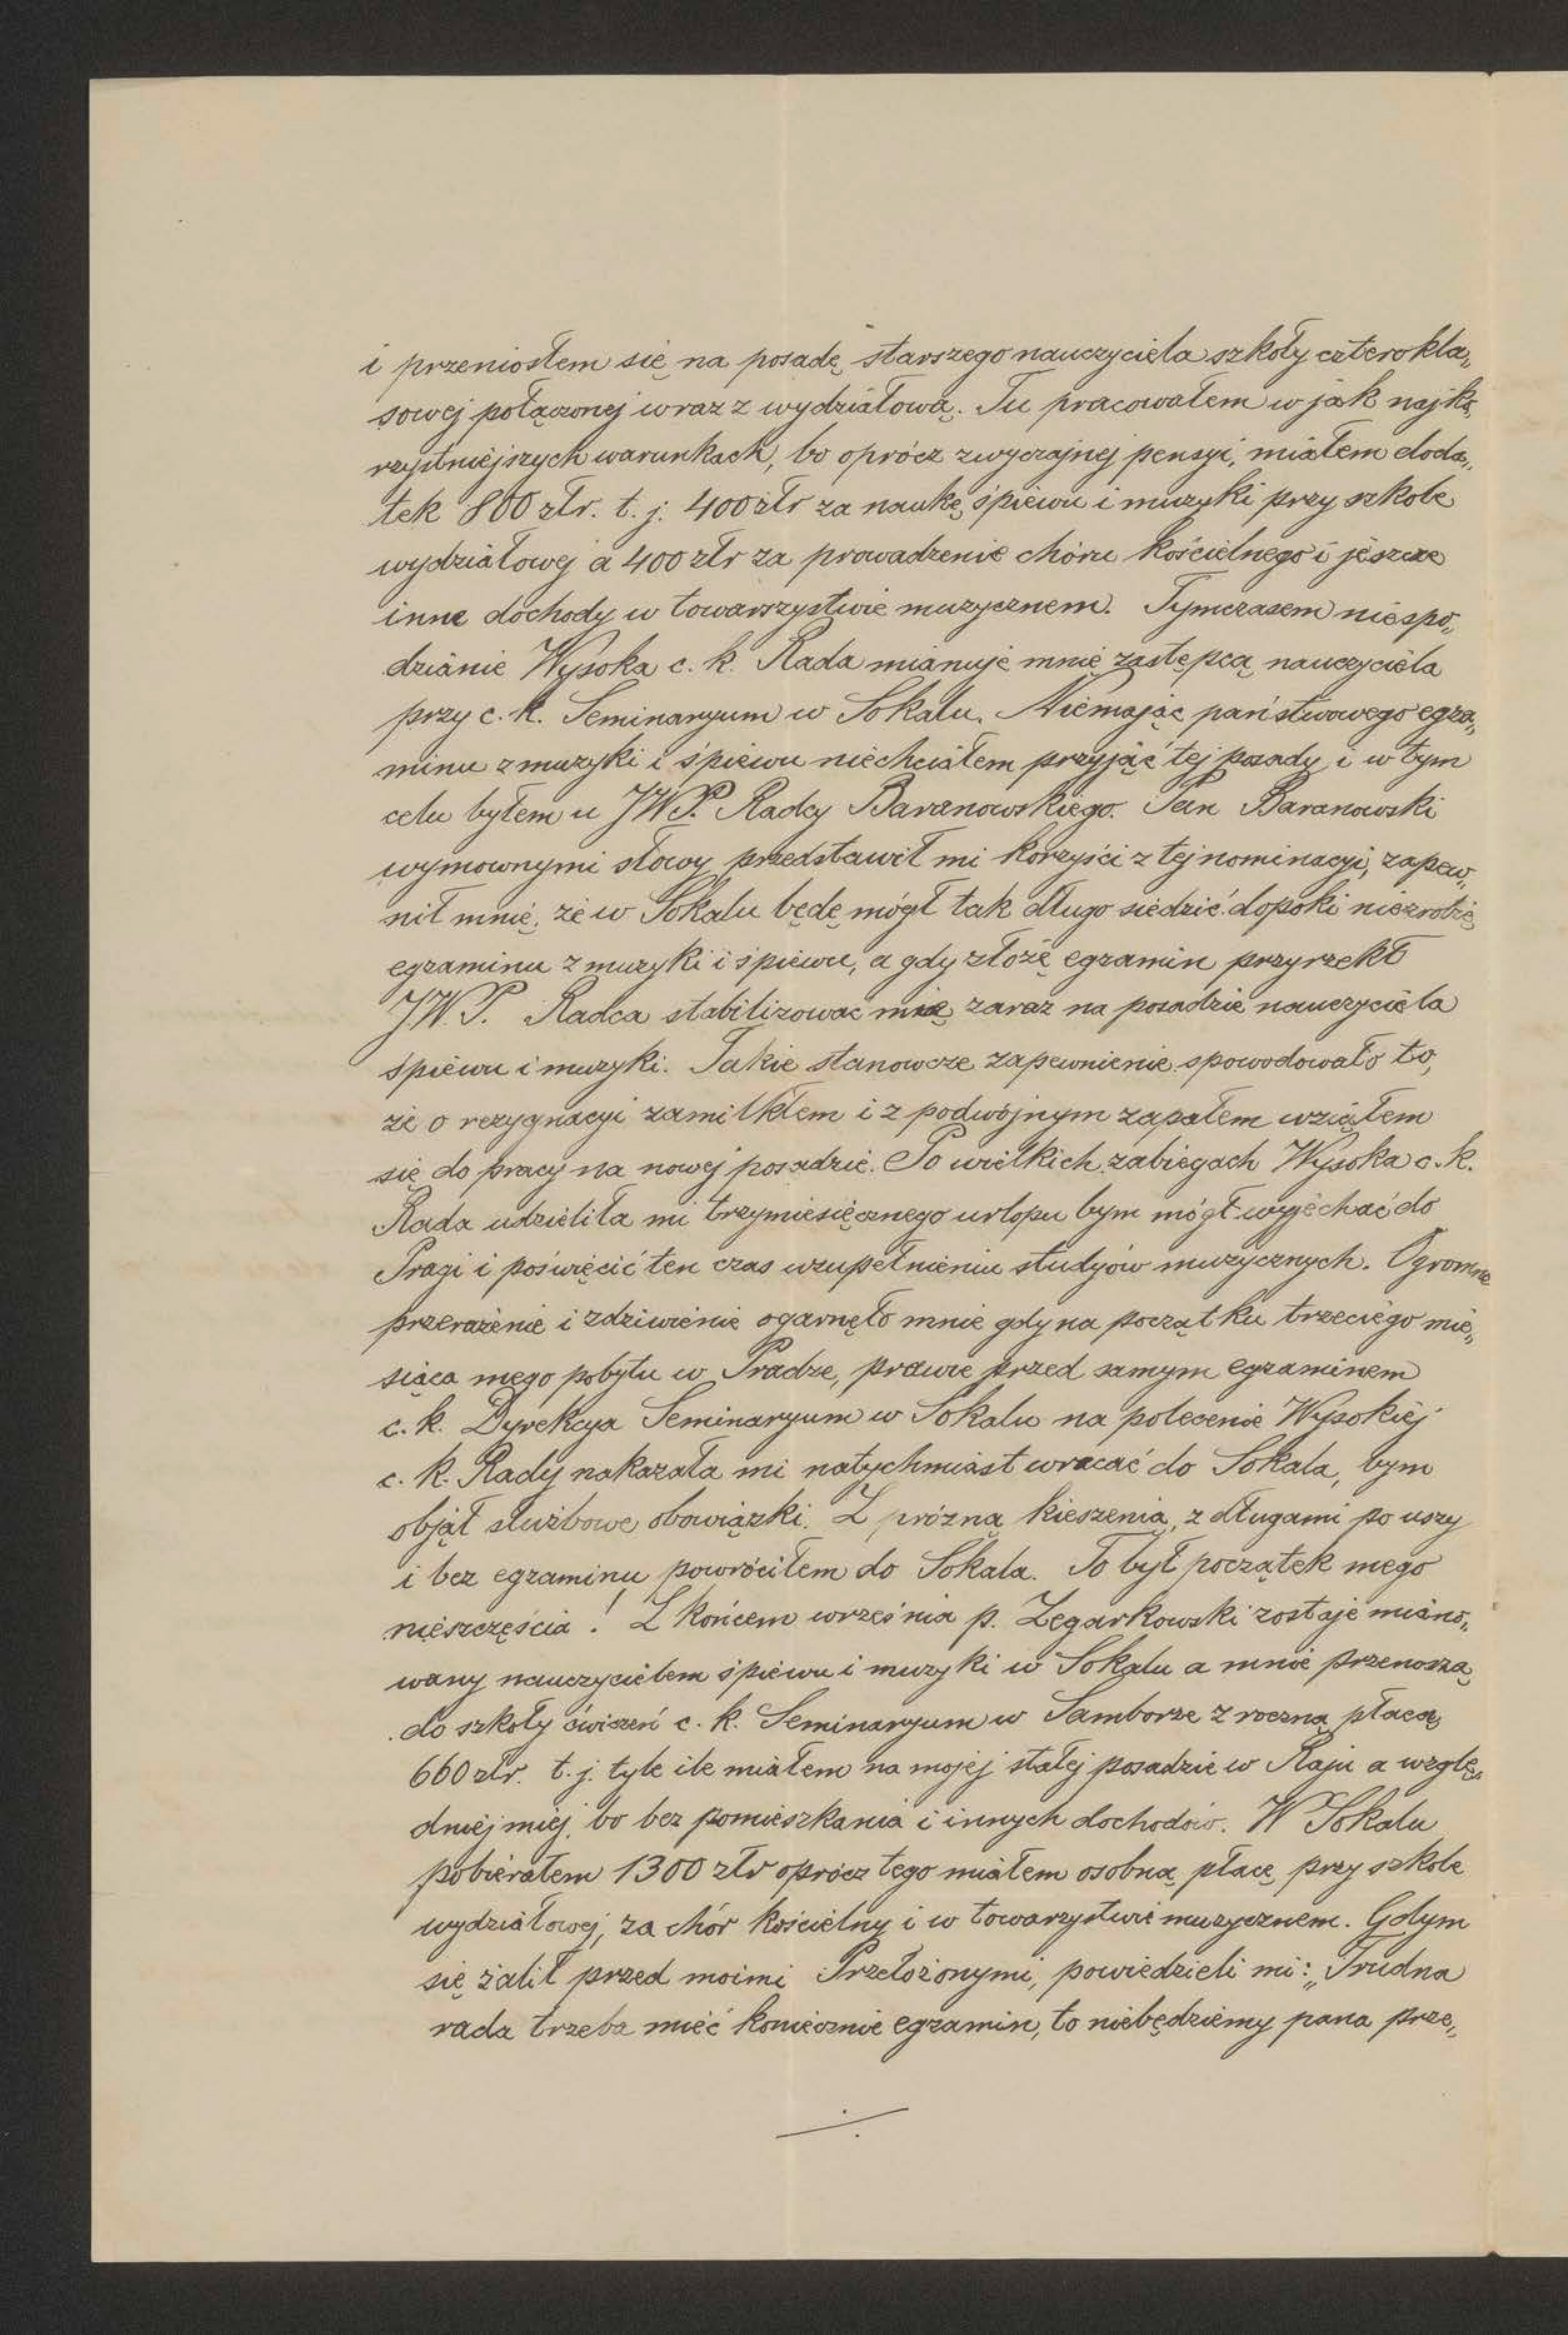 i przeniosłem się na posadę starszego nauczyciela szkoły czterokla„
sowej połączonej wraz z wydziałową. Tu pracowałem w jak najko„
rzystniejszych warunkach, bo oprócz zwyczajnej pensyi, miałem doda„
tek 800 złr. t. j. 400 złr za naukę śpiewu i muzyki przy szkole
wydziałowej a 400 złr za prowadzenie chóru kościelnego i jeszcze
inne dochody w towarzystwie muzycznem. Tymczasem niespo„
dzianie Wysoka c. k. Rada mianuje mnie zastępcą nauczyciela
przy c. k. Seminaryum w Sokalu. Niemając państwowego egza„
minu z muzyki i śpiewu niechciałem przyjąć tej posady i w tym
celu byłem u JWP. Radcy Baranowskiego. Pan Baranowski
wymownymi słowy przedstawił mi korzyści z tej nominacyi, zapew„
nił mnie, że w Sokalu będę mógł tak długo siedzić dopoki niezrobię
egzaminu z muzyki i śpiewu, a gdy złożę egzamin przyrzekł
JW.P. Radca stabilizować mię zaraz na posadzie nauczyciela
śpiewu i muzyki. Takie stanowcze zapewnienie spowodowało to,
że o rezygnacyi zamilkłem i z podwójnym zapałem wziąłem
się do pracy na nowej posadzie. Po wielkich zabiegach Wysoka c. k.
Rada udzieliła mi trzymiesięcznego urlopu bym mógł wyjechać do
Pragi i poświęcić ten czas uzupełnieniu studyów muzycznych. Ogromne
przerażenie i zdziwienie ogarnęło mnie gdy na początku trzeciego mie„
siąca mego pobytu w Pradze, prawie przed samym egzaminem
c. k. Dyrekcya Seminaryum w Sokalu na polecenie Wysokiej
c. k. Rady nakazała mi natychmiast wracać do Sokala, bym
objął służbowe obowiązki. Z próżną kieszenią, z długami po uszy
i bez egzaminu powróciłem do Sokala. To był początek mego
nieszczęścia! Z końcem września p. Zegarkowski zostaje miano„
wany nauczycielem śpiewu i muzyki w Sokalu a mnie przenoszą
do szkoły ćwiczeń c. k. Seminaryum w Samborze z roczną płacą
660 złr. t. j. tyle ile miałem na mojej stałej posadzie w Raju a wzglę„
dniej miej, bo bez pomieszkania i innych dochodów. W Sokalu
pobierałem 1300 złr oprócz tego miałem osobną płacę przy szkole
wydziałowej, za chór kościelny i w towarzystwie muzycznem. Gdym
się żalił przed moimi Przełożonymi, powiedzieli mi: „Trudna
rada trzeba mieć koniecznie egzamin, to niebędziemy pana prze„